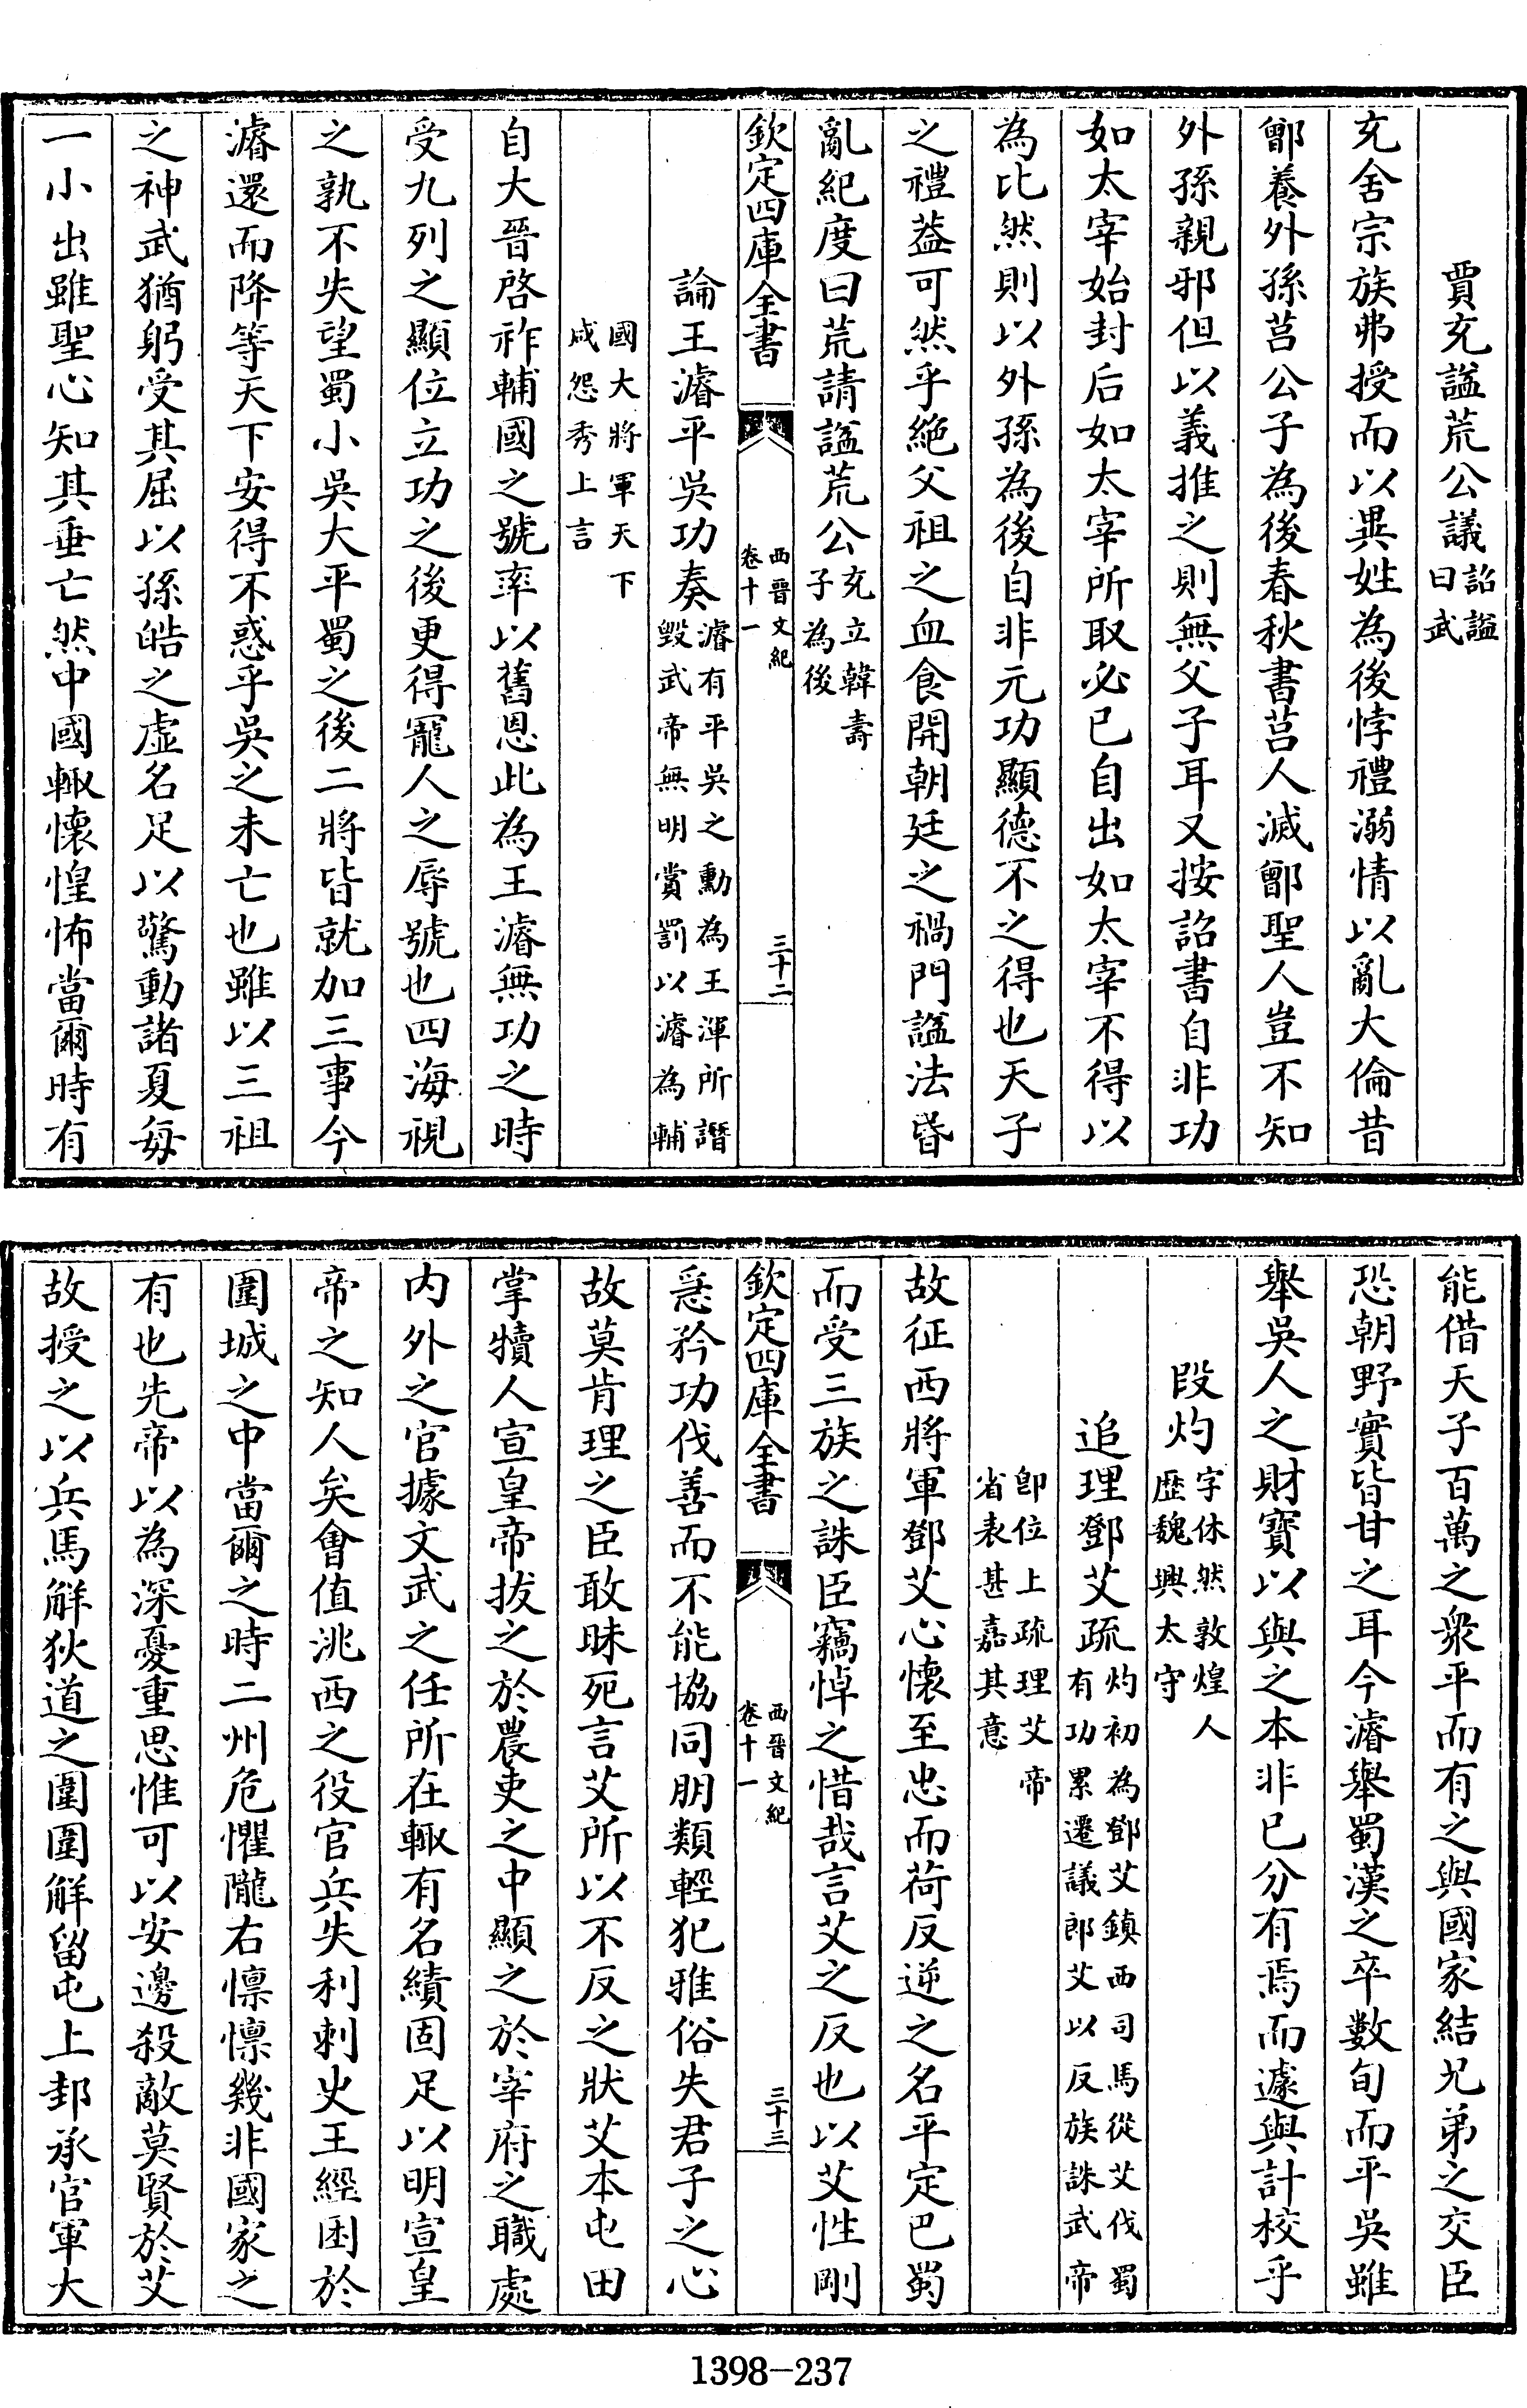 賈充諡荒公議詔諡曰武
充舍宗族弗授而以異姓為後悖禮溺情以亂大倫昔
鄫養外孫莒公子為後春秋書莒人滅鄫聖人豈不知
外孫親邪但以義推之則無父子耳又按詔書自非功
如太宰始封后如太宰所取必已自出如太宰不得以
為比然則以外孫為後自非元功顯德不之得也天子
之禮葢可然乎絶父祖之血食開朝廷之禍門諡法昏
亂紀度曰荒請諡荒公充立韓壽子為後
欽定四庫全書 西晉文紀卷十一 三十二
論王濬平吳功奏濬有平吳之勳為王渾所譖毀武帝無明賞罰以濬為輔
國大將軍天下咸怨秀上言
自大晉啓祚輔國之號率以舊恩此為王濬無功之時
受九列之顯位立功之後更得寵人之辱號也四海視
之孰不失望蜀小吳大平蜀之後二將皆就加三事今
濬還而降等天下安得不惑乎吳之未亡也雖以三祖
之神武猶躬受其屈以孫皓之虛名足以驚動諸夏每
一小出雖聖心知其垂亡然中國輙懷惶怖當爾時有
能借天子百萬之衆平而有之與國家結兄弟之交臣
恐朝野實皆甘之耳今濬舉蜀漢之卒數旬而平吳雖
舉吳人之財寶以與之本非已分有焉而遽與計校乎
段灼字休然敦煌人歴魏興太守
追理鄧艾疏灼初為鄧艾鎮西司馬從艾伐蜀有功累遷議郎艾以反族誅武帝
卽位上疏理艾帝省表甚嘉其意
故征西將軍鄧艾心懷至忠而荷反逆之名平定巴蜀
而受三族之誅臣竊悼之惜哉言艾之反也以艾性剛
欽定四庫全書 西晉文紀卷十一 三十三
急矜功伐善而不能協同朋類輕犯雅俗失君子之心
故莫肯理之臣敢昧死言艾所以不反之狀艾本屯田
掌犢人宣皇帝拔之於農吏之中顯之於宰府之職處
内外之官據文武之任所在輙有名績固足以明宣皇
帝之知人矣會值洮西之役官兵失利刺史王經困於
圍城之中當爾之時二州危懼隴右懍懍幾非國家之
有也先帝以為深憂重思惟可以安邊殺敵莫賢於艾
故授之以兵馬解狄道之圍圍解留屯上邽承官軍大
1398-237